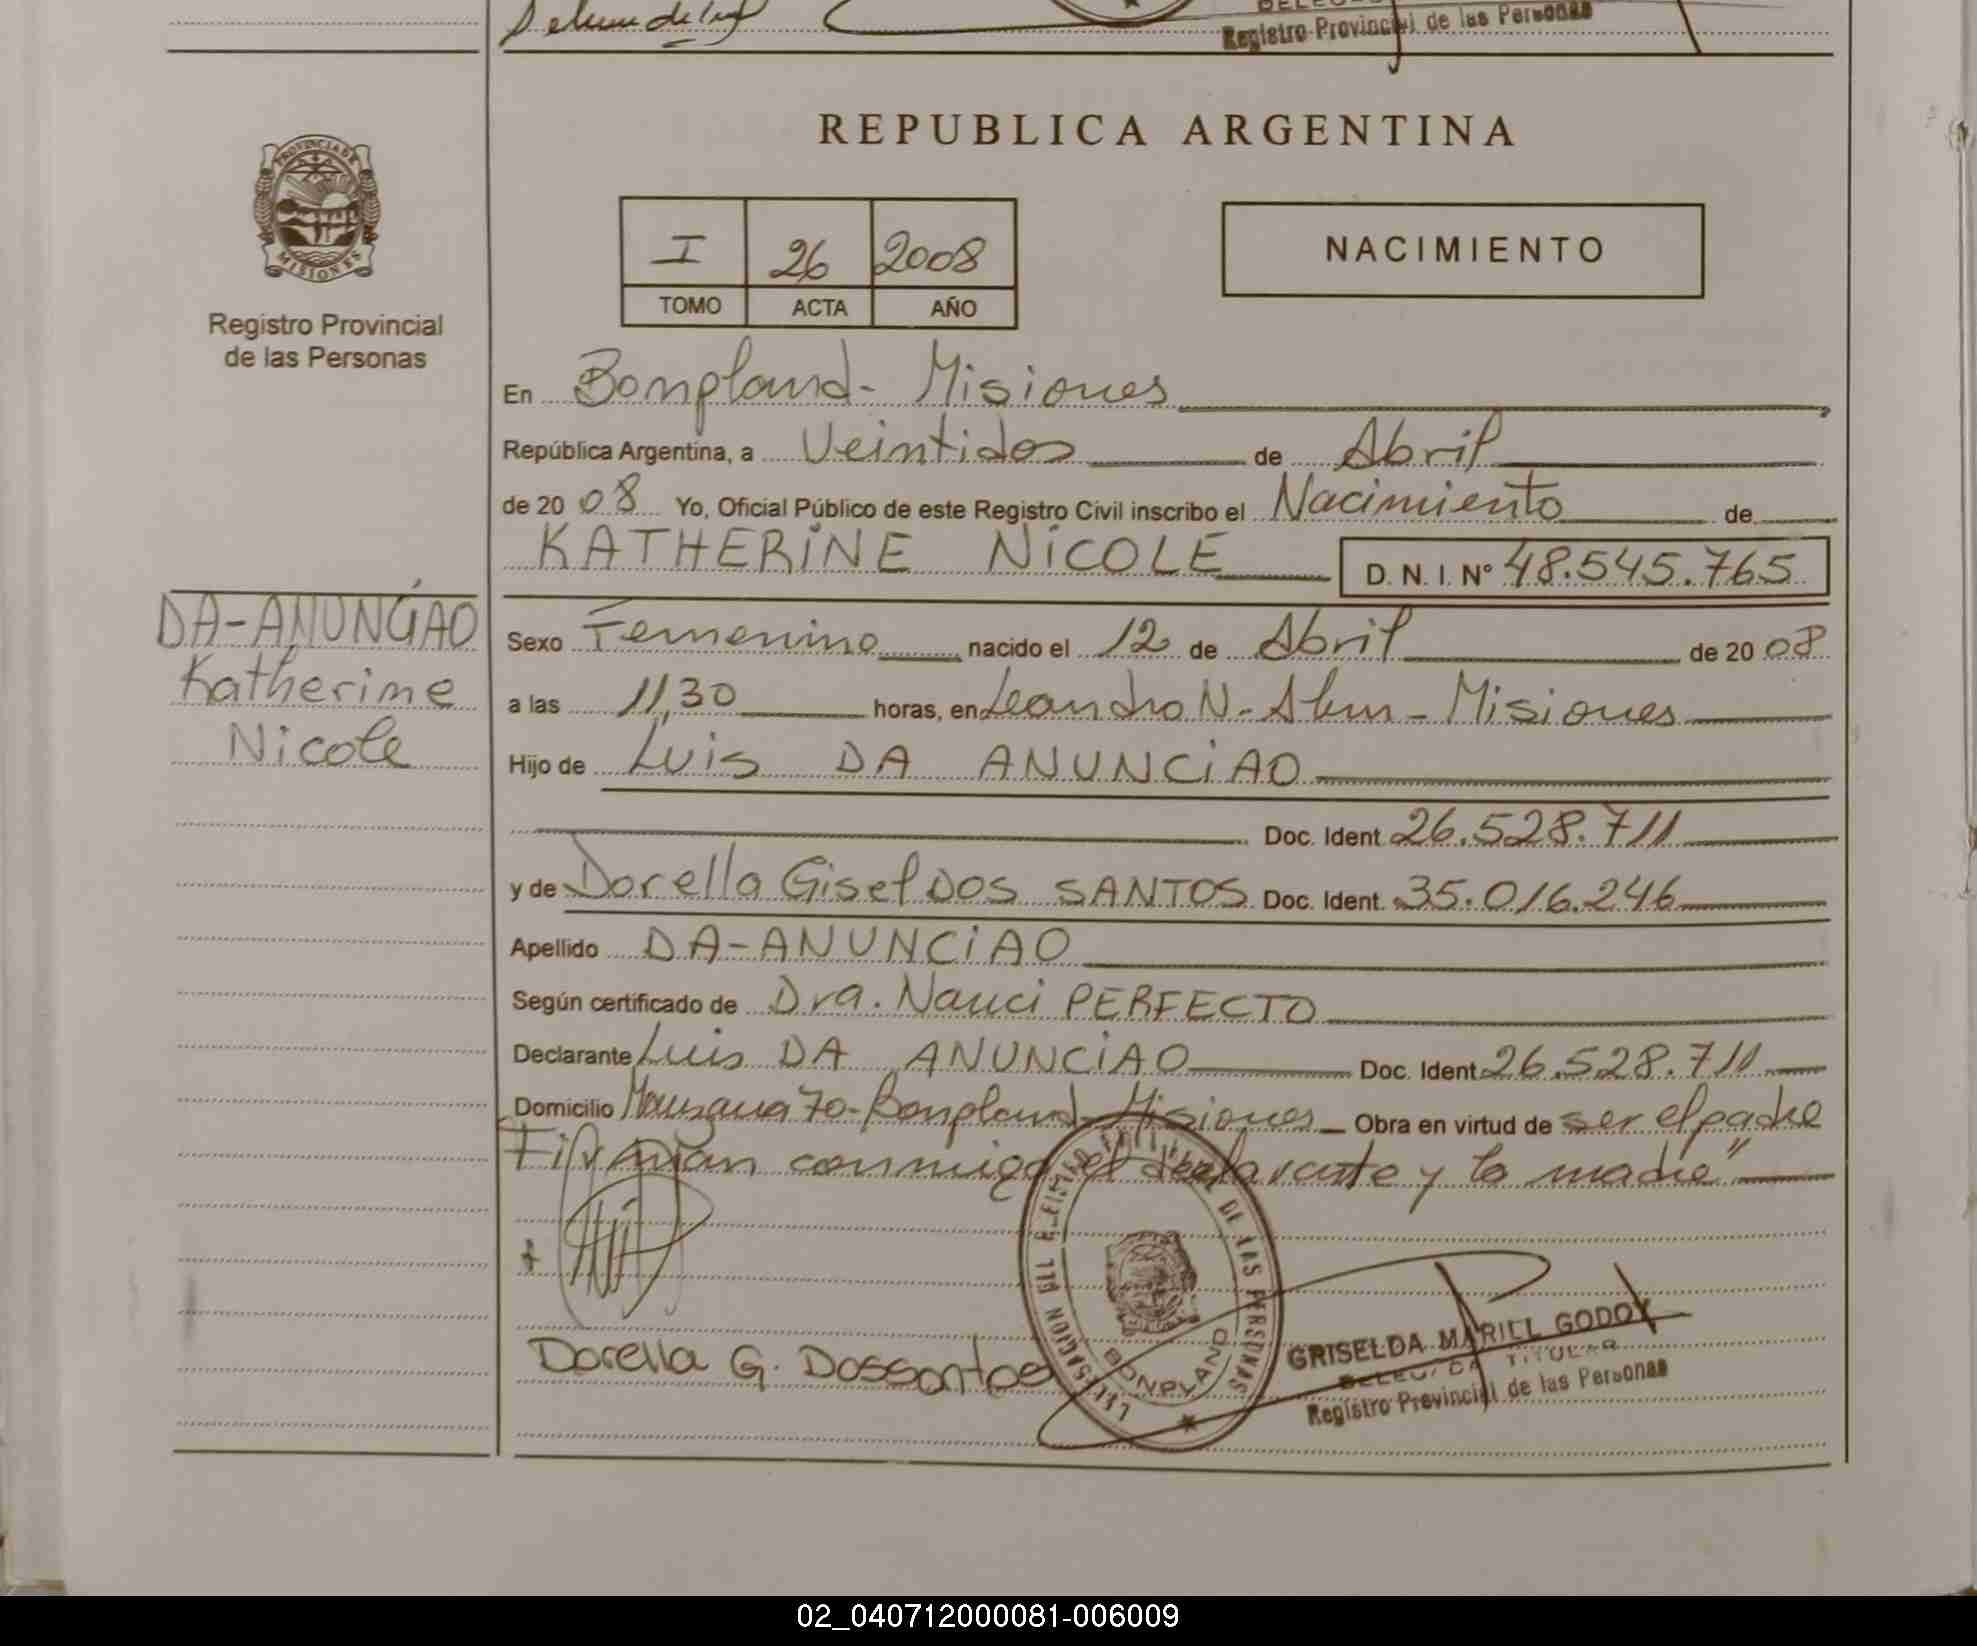 Registro Provincial de las Personas
REPUBLICA ARGENTINA
PROVINCIA DE
MISIONES
Registro Provincial
de las Personas
I 26 2008
TOMO ACTA AÑO
NACIMIENTO
En Bonpland - Misiones
República Argentina, a Veintidos de Abril
de 20 08 Yo, Oficial Público de este Registro Civil inscribo el Nacimiento de
KATHERINE NICOLE D. N. I. Nº 48.545.765
DA-ANUNCIAO
Katherine
Nicole
Sexo Femenino nacido el 12 de Abril de 20 08
a las 11,30 horas, en Leandro N. Alem - Misiones
Hijo de Luis DA ANUNCIAO
Doc. Ident. 26.528.711
y de Dorella Gisel DOS SANTOS Doc. Ident. 35.016.246
Apellido DA-ANUNCIAO
Según certificado de Dra. Nanci PERFECTO
Declarante Luis DA ANUNCIAO Doc. Ident. 26.528.711
Domicilio Manzana 70 - Bonpland - Misiones Obra en virtud de ser el padre
Firman conmigo el declarante y la madre"
DE LAS PERSONAS
BONPLAND
Dorella G. Dossantos
GRISELDA MARILL GODOY
DELEGADA TITULAR
Registro Provincial de las Personas
02_040712000081-006009